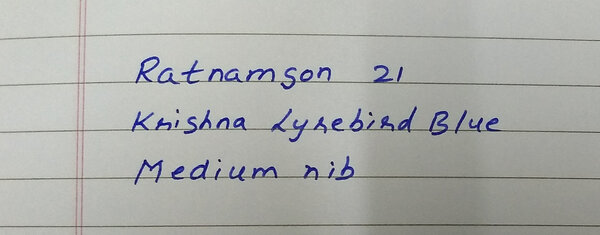 Ratnamson 21
Krishna Lyrebird Blue
Medium nib